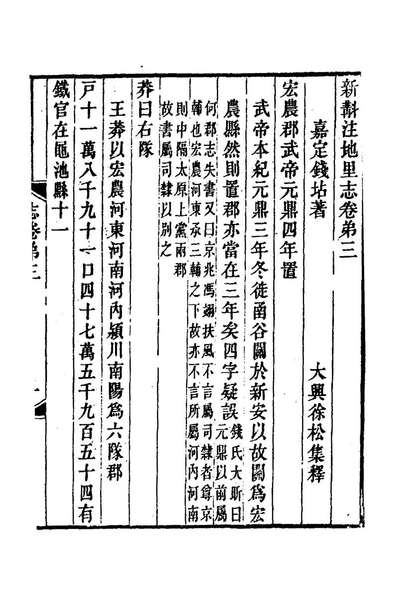 新斠注地里志卷第三
嘉定錢坫著　大興徐松集釋
宏農郡武帝元鼎四年置
武帝本紀元鼎三年冬徙函谷關於新安以故關爲宏
農縣然則置郡亦當在三年矣四字疑誤錢氏大昕曰
元鼎以前屬
何郡志失書又曰京兆馮翊扶風不言屬司隸者爲京
輔也宏農河東承三輔之下故亦不言所屬河內河南
則中隔太原上黨兩郡
故書屬司隸以別之
莽曰右隊
王莽以宏農河東河南河內潁川南陽爲六隊郡
戸十一萬八千九十一口四十七萬五千九百五十四有
鐵官在黽池縣十一
志卷第三
一